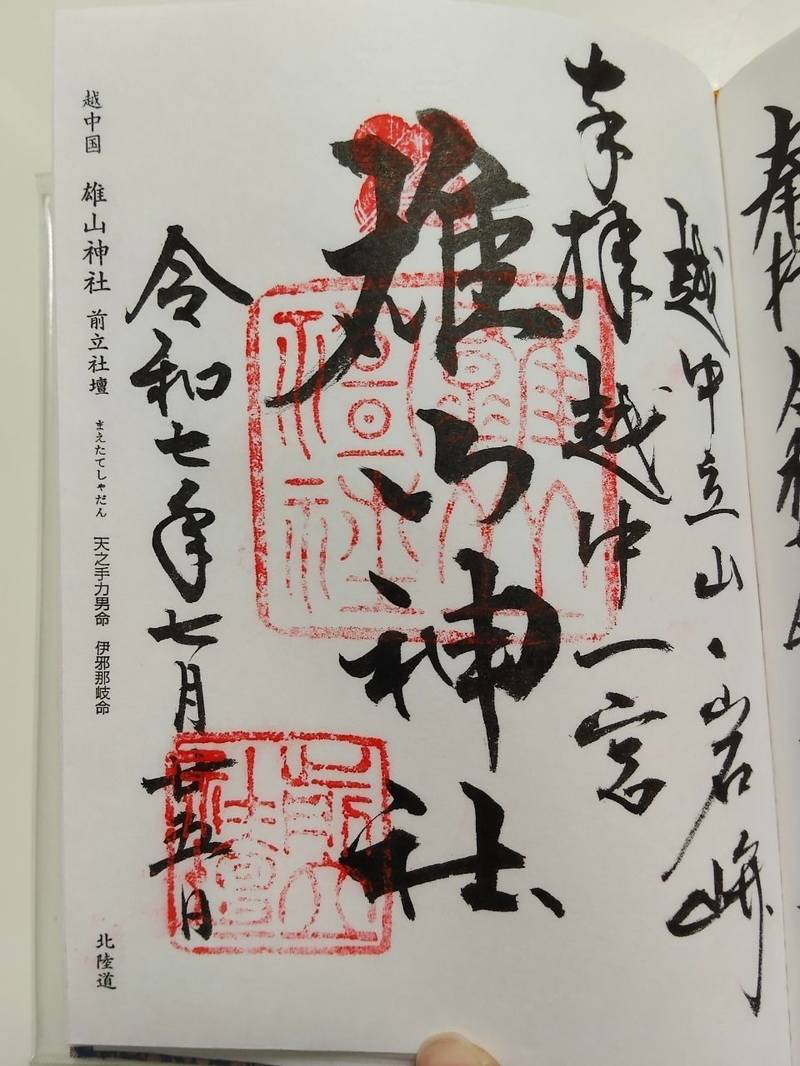 越中立山・岩峅
奉拝 越中一宮
雄山神社
令和七年七月廿五日
越中国 雄山神社 前立社壇 まえたてしゃだん 天之手力男命 伊邪那岐命 北陸道
雄山神社
前立社壇
奉拝